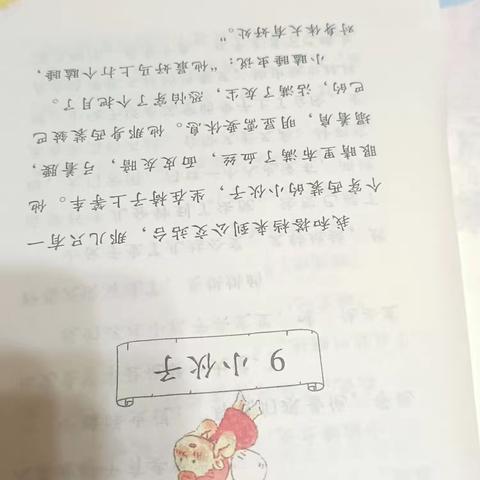 9 小伙子
我和搭档来到公交站台，那儿只有一
个穿西装的小伙子，坐在椅子上等车。他
眼睛里布满了血丝，面皮灰暗，弓着腰，
塌着肩，明显需要休息。他那身西装皱巴
巴的，沾满了灰尘，恐怕穿了个把月了。
小瞌睡虫说：“他最好马上打个瞌睡，
对身体大有好处。”